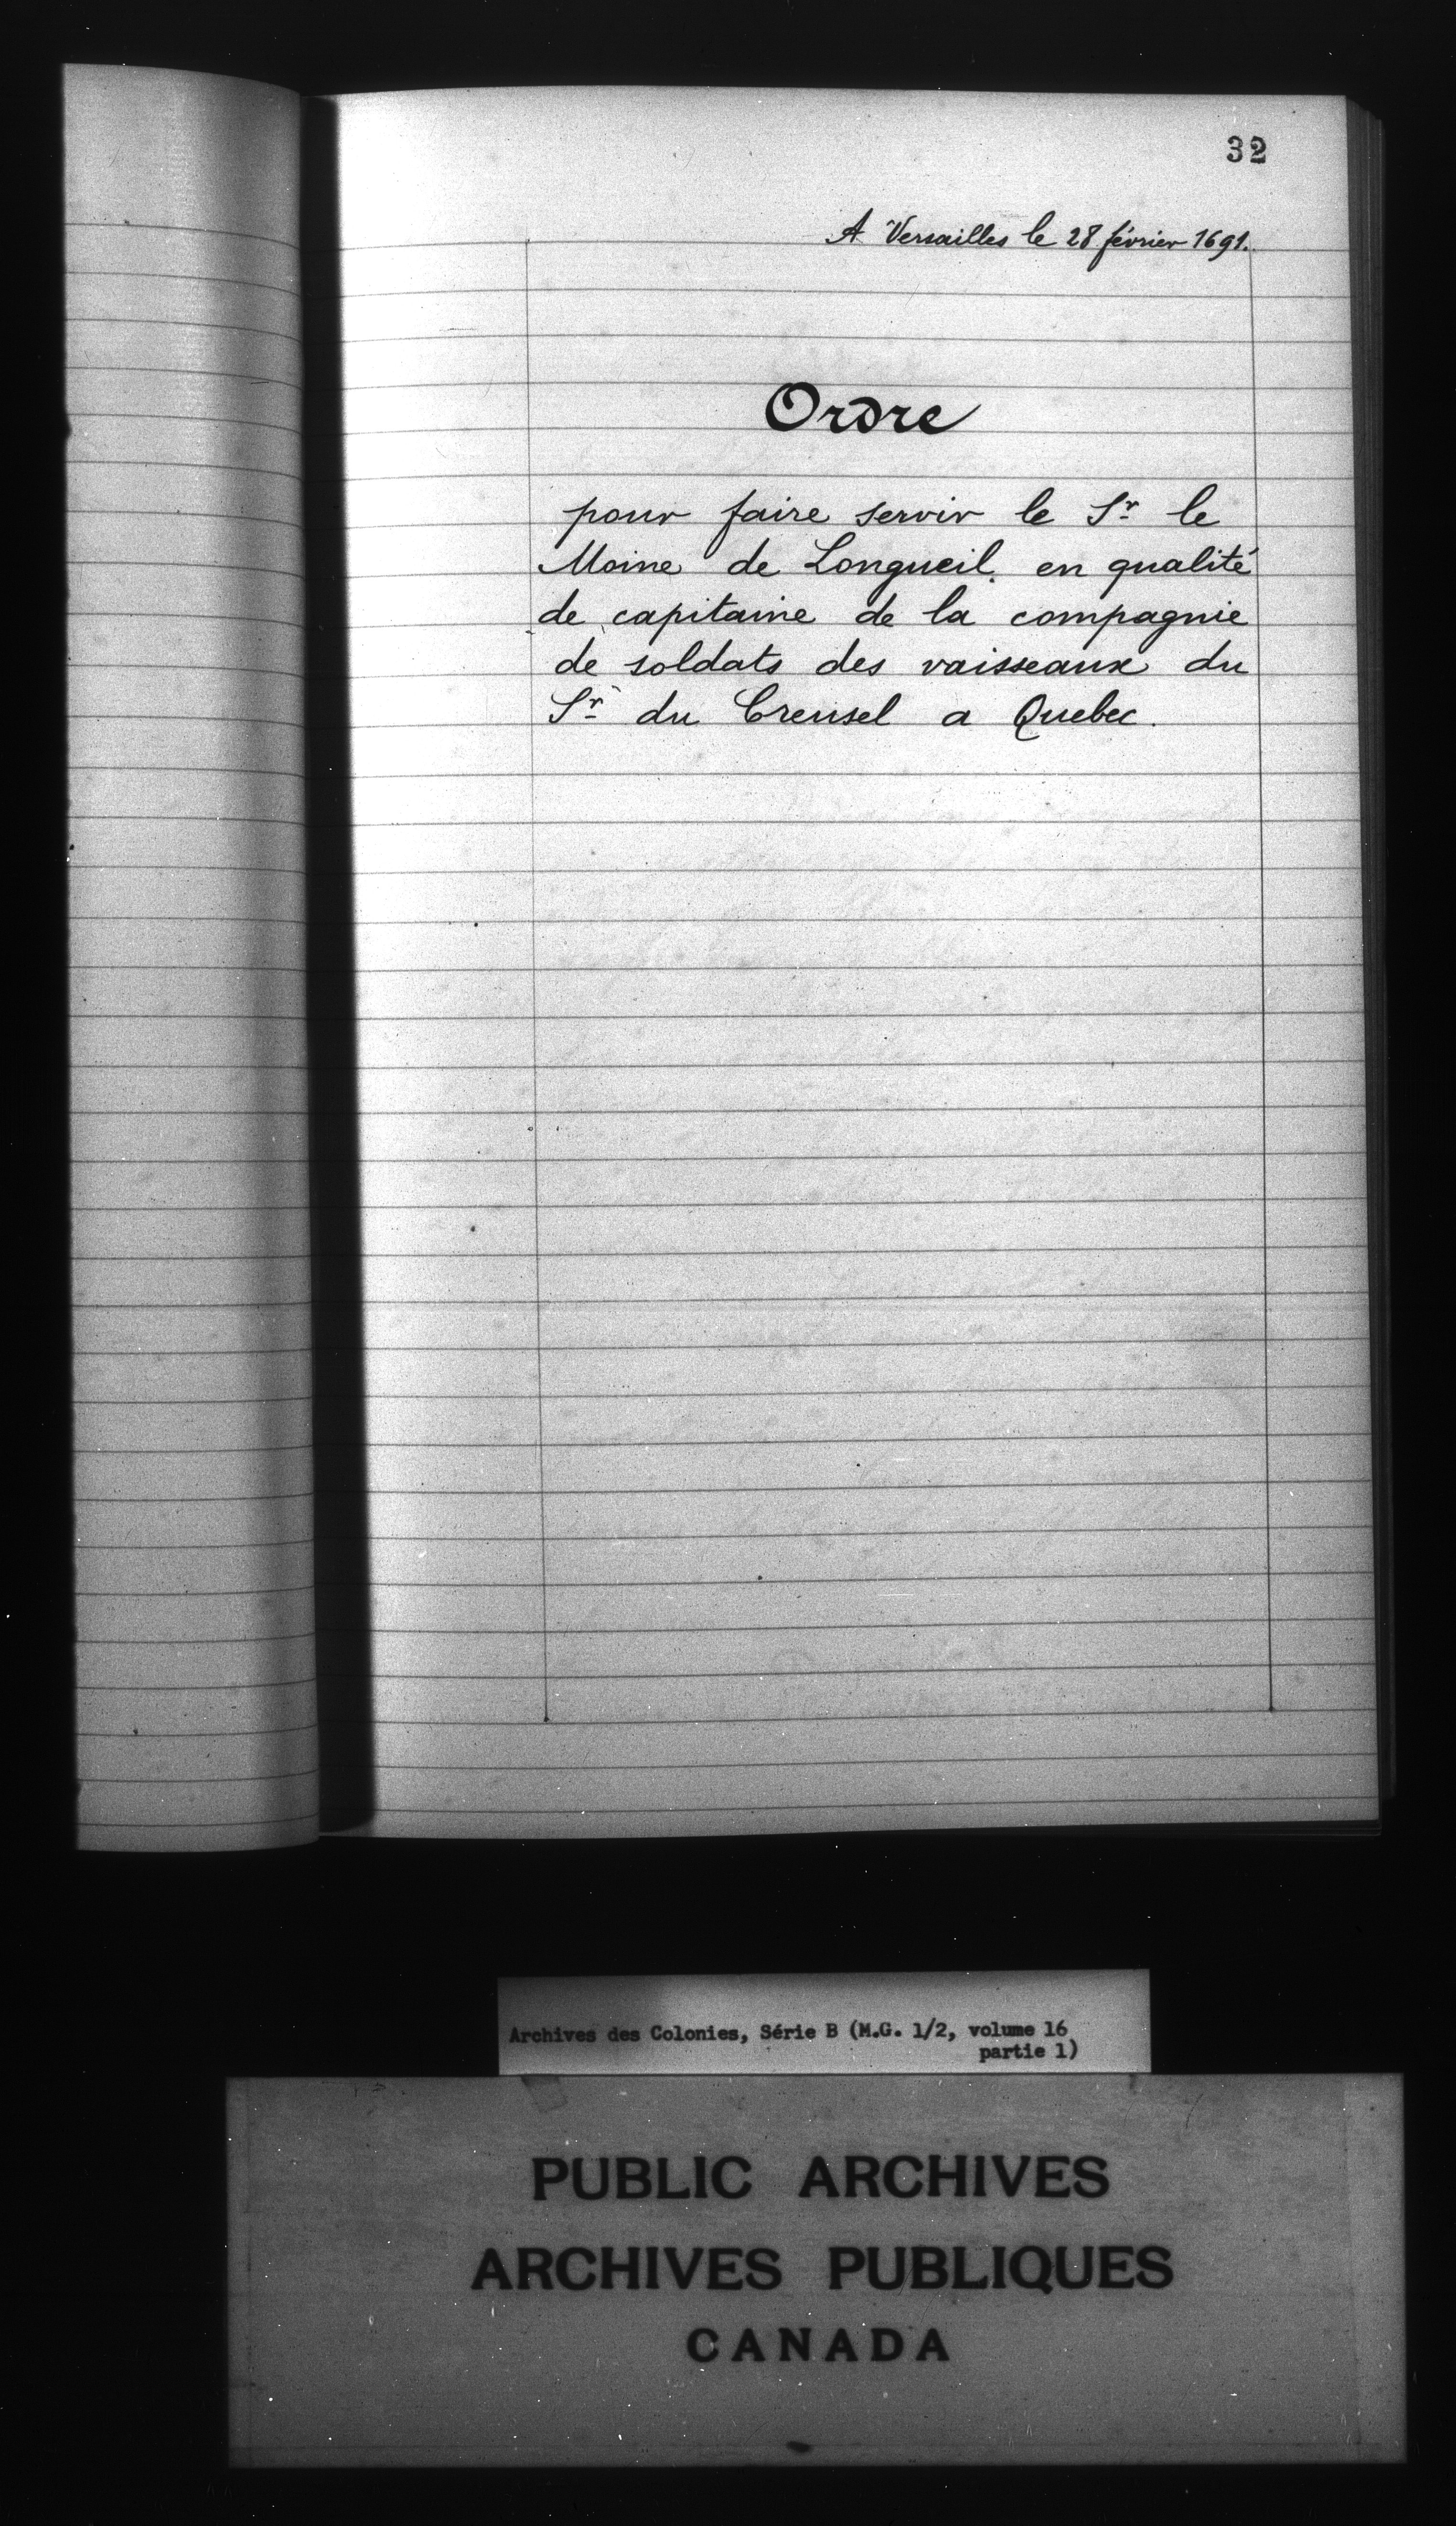 32
A Versailles le 28 février 1691.
Ordre
pour faire servir le Sr le
Moine de Longueil, en qualité
de capitaine de la compagnie
de soldats des vaisseaux du
Sr du Creusel a Quebec.
Archives des Colonies, Série B (M.G. 1/2, volume 16
partie 1)
PUBLIC ARCHIVES
ARCHIVES PUBLIQUES
CANADA